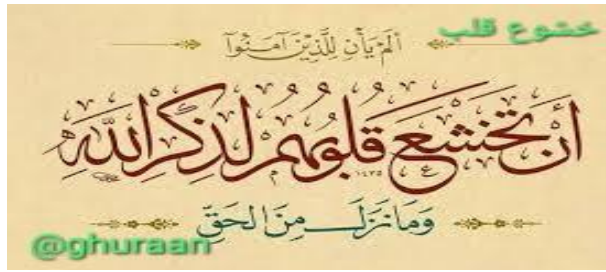 خشوع قلب
أَلَمْ يَأْنِ لِلَّذِينَ آمَنُوٓا
أَنْ تَخْشَعَ قُلُوبُهُمْ لِذِكْرِ اللَّهِ
١٤٣٥
وَمَا نَزَلَ مِنَ الْحَقِّ
@ghuraan